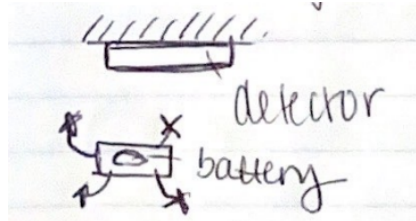 detector
battery